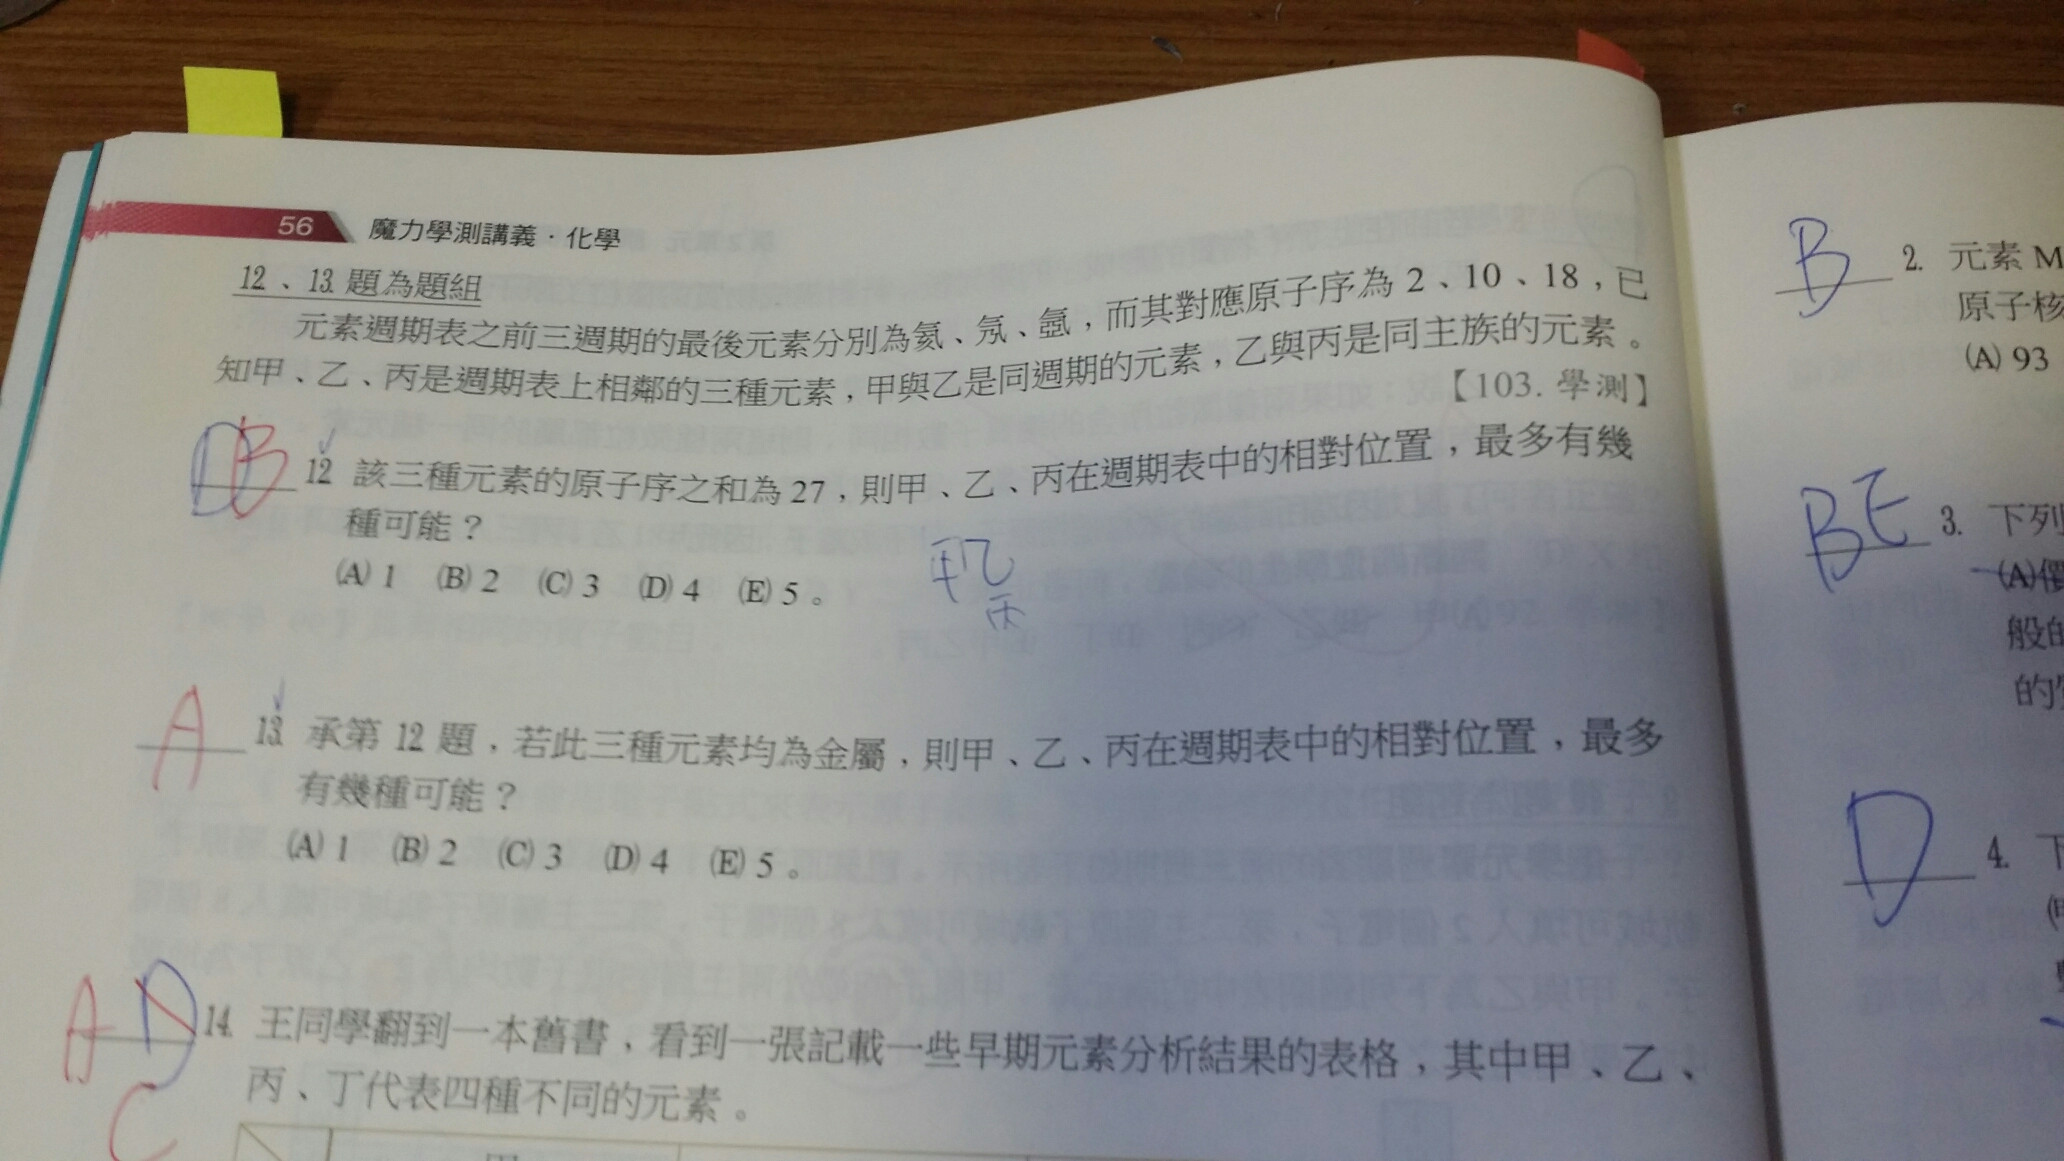 56 魔力學測講義·化學
12、13. 題為題組
元素週期表之前三週期的最後元素分別為氦、氖、氬，而其對應原子序為 2、10、18，已
知甲、乙、丙是週期表上相鄰的三種元素，甲與乙是同週期的元素，乙與丙是同主族的元素。
【103. 學測】
DB 12. 該三種元素的原子序之和為 27，則甲、乙、丙在週期表中的相對位置，最多有幾
種可能？
(A) 1 (B) 2 (C) 3 (D) 4 (E) 5。
甲乙
丙
A 13. 承第 12 題，若此三種元素均為金屬，則甲、乙、丙在週期表中的相對位置，最多
有幾種可能？
(A) 1 (B) 2 (C) 3 (D) 4 (E) 5。
A D 14. 王同學翻到一本舊書，看到一張記載一些早期元素分析結果的表格，其中甲、乙、
C
丙、丁代表四種不同的元素。
B 2. 元素 M
原子核
(A) 93
BE 3. 下列
(A)
般的
的
D 4. 下